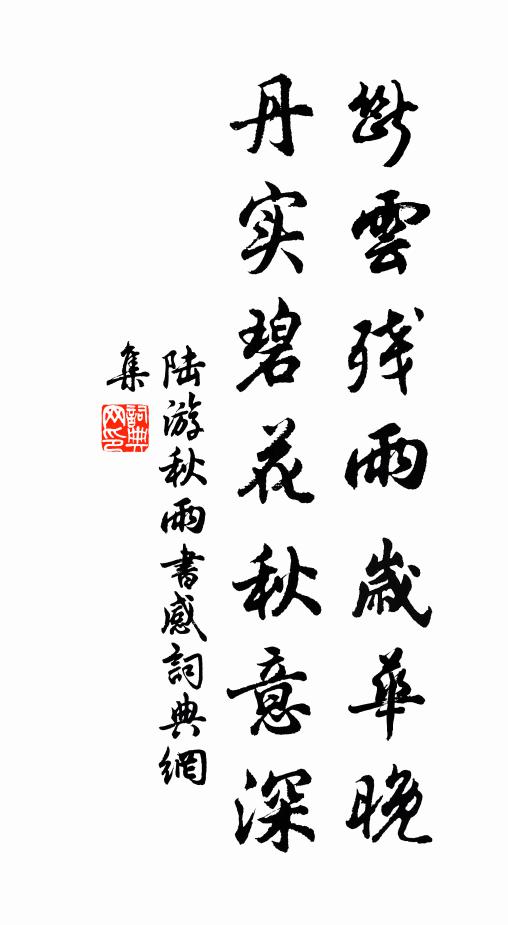 斷雲残雨歲華晚
丹实碧花秋意深
陆游秋雨書感詞典網
集
詞典网印